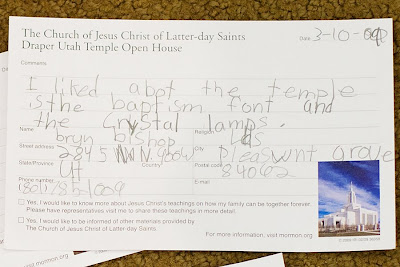 The Church of Jesus Christ of Latter-day Saints
Draper Utah Temple Open House
Date 3-10-09
Comments
I liked abot the temple
is the baptism font and
the Crystal lamps.
Name Religion
bryn bishop lds
Street address City
2845 N 900 W Pleaswnt grove
State/Province Country Postal code
Ut 84062
Phone number E-mail
(801) 785-1009
Yes, I would like to know more about Jesus Christ's teachings on how my family can be together forever.
Please have representatives visit me to share these teachings in more detail.
Yes, I would like to be informed of other materials provided by
The Church of Jesus Christ of Latter-day Saints
For more information, visit mormon.org
mormon.org